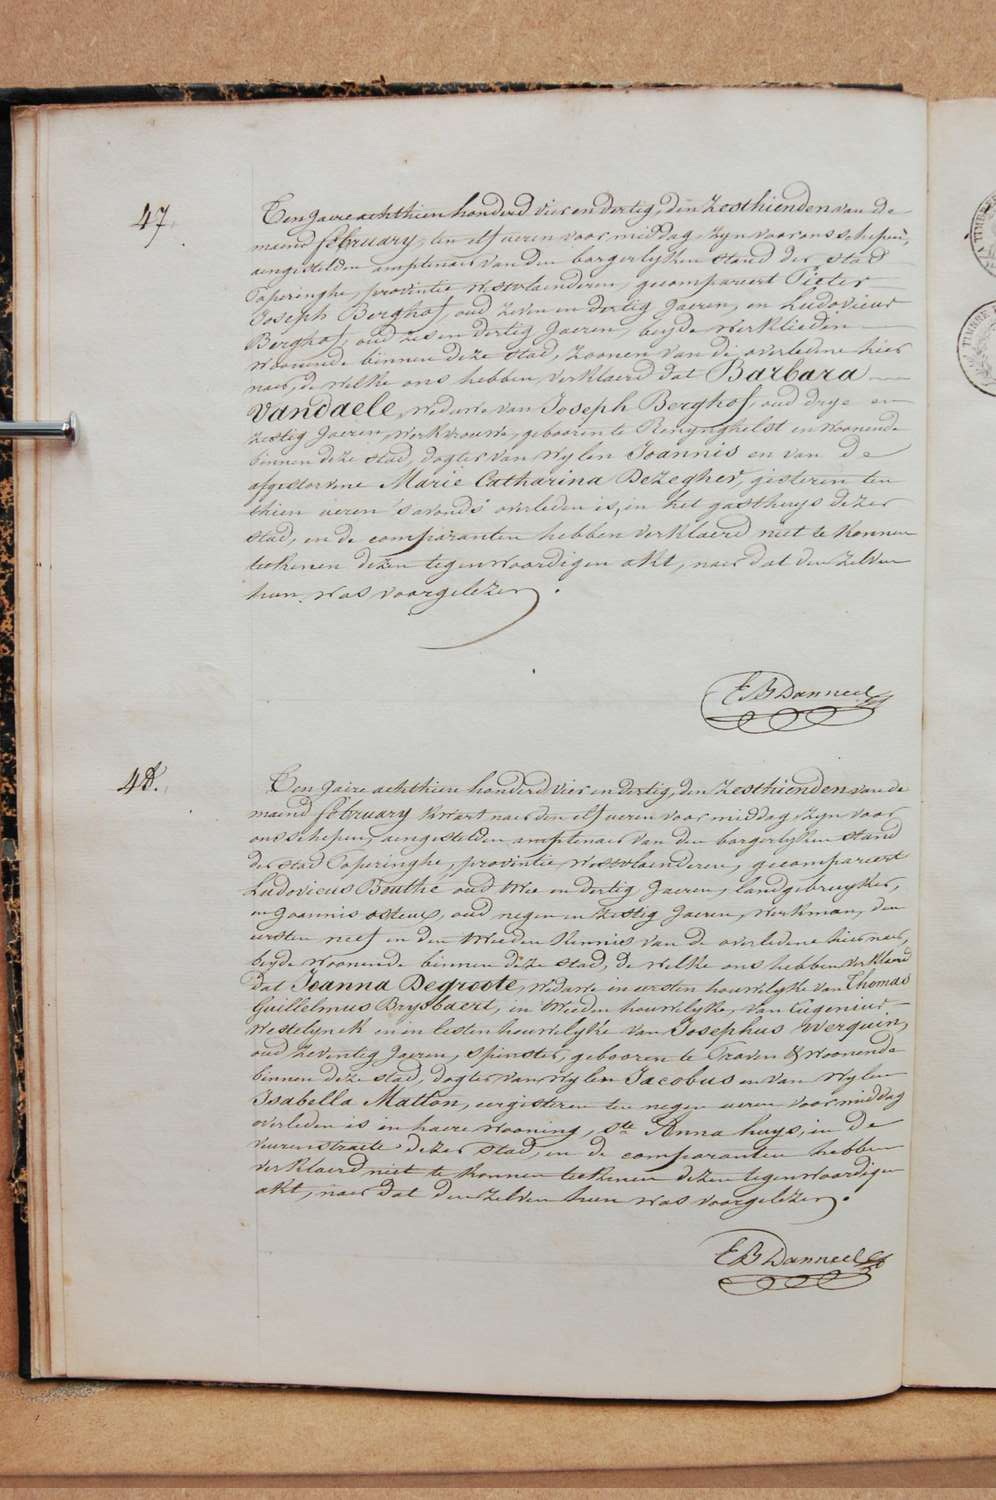 47.
Ten jaere achthien honderd vier en dertig, den Zesthienden van de
maend february, ten elf ueren voor middag, zyn voor ons schepen,
aengestelden amptenaer van den borgerlyken stand der stad
Poperinghe, provintie Westvlaenderen, gecompareert Pieter
Joseph Berghof, oud zeven en dertig Jaeren, en Ludovicus
Berghof, oud zes en dertig Jaeren, beyde werklieden
woonende binnen deze stad, zoonen van de overledene hier
naer, de welke ons hebben verklaerd dat Barbara
Vandaele, weduwe van Joseph Berghof, oud drye en
zestig Jaeren, werkvrouwe, gebooren te Renynghelst en woonende
binnen deze stad, dogter van wylen Joannis en van de
afgestorvene Marie Catharina Dezegher, gisteren ten
thien ueren s'avonds overleden is, in het gasthuys dezer
stad, en de comparanten hebben verklaerd niet te konnen
teekenen dezen tegenwoordigen akt, naer dat den zelven
hun was voorgelezen.
E B Danneel
48.
Ten jaere achthien honderd vier en dertig, den Zesthienden van de
maend february kwart naer den elf ueren voor middag, zyn voor
ons schepen, aengestelden amptenaer van den borgerlyken stand
der stad Poperinghe, provintie Westvlaenderen, gecompareert
Ludovicus Bouthe oud twee en dertig Jaeren, landgebruyker,
en Joannis osteux, oud negen en zestig Jaeren, werkman, den
eersten neef en den tweeden kennis van de overledene hier naer,
beyde woonende binnen deze stad, de welke ons hebben verklaerd
dat Joanna Degroote, weduwe en eersten houwelyke van Thomas
Guillelmus Brysbaert, in tweeden houwelyke, van Eugenius
Westelynck en in lesten houwelyke van Josephus Werquin,
oud zeventig Jaeren, spinster, gebooren te Proven & woonende
binnen deze stad, dogter van wylen Jacobus en van wylen
Isabella Matton, eergisteren ten negen ueren voor middag
overleden is en haere wooning, ste Anna huys, in de
veurenstraete dezer stad, en de comparanten hebben
verklaerd niet te konnen teekenen dezen tegenwoordigen
akt, naer dat den zelven hun was voorgelezen.
E B Danneel